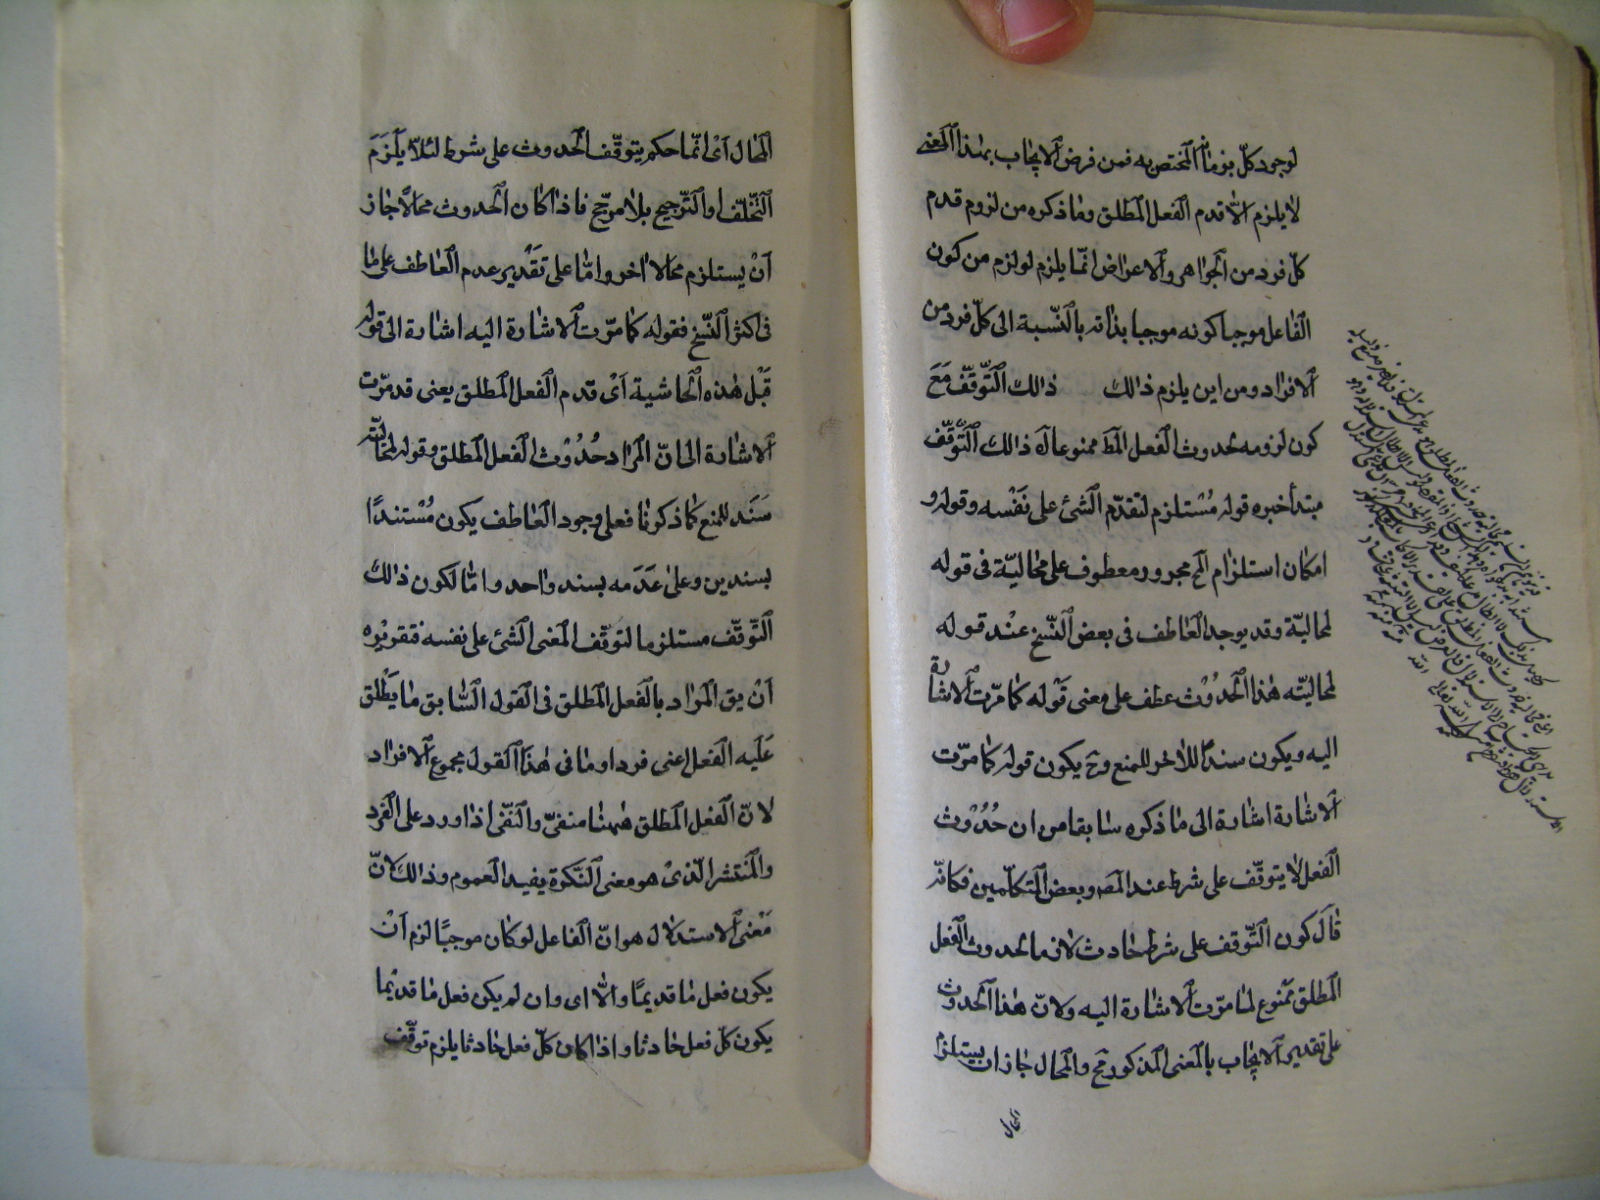 لوجود كلّ بزمانٍ المختص به فمن فرض الايجاب بهذا المعنى
لا يلزم الّا قدم الفعل المطلق وما ذكره من لزوم قدم
كلّ فرد من الجواهر والاعراض انّما يلزم لو لزم من كون
الفاعل موجبا كونه موجبا بذاته بالنّسبة الى كلّ فرد من
الافراد ومن اين يلزم ذالك ذالك التّوقّف مَعَ
كون لزومه لحدوث الفعل المط ممنوعا له ذالك التّوقّف
مبتدأ خبره قوله مُسْتلزم لتقدّم الشئ على نَفْسه وقوله و
امكان استلزام الخ مجرور معطوف على محاليّة فى قوله
لمحاليّة وقد يوجد العاطف فى بعض النّسخ عنْد قوله
لمحاليّته هٰذا الحُدُوْث عطف على معنى قَوْله كما مرّت الاشارة
اليه ويكون سندًا للاخر للمنع وح يكون قوله كما مرّت
الاشارة اشارة الى ما ذكره سابقا من ان حُدُوْث
الفعل لا يتوقّف على شرط عند المصـ وبعض المتكلّمين فكانّه
قالَ كون التّوقف على شرط حادث لازما لحدوث الفعل
المطلق ممْنوع لما مرّت الاشارة اليه ولانّ هٰذا الحدوث
على تقدير الايجاب بالمعنى المذكور مح والمحال جاز ان يستلزم
المحال
المحال اَىْ انّما حكم يتوقّف الحدوث على شرط لئلّا يلْزَمَ
التّخلّف او التّرجيح بلا مرجّح فاذا كان الحدوث محالًا جاز
اَنْ يستلزم محالا اخر وامّا على تقْدير عدم العاطف على ما
فى اكثر النّسخ فقوله كما مرّت الاشارة اليه اشارة الى قوله
قبْل هٰذه الحاشية اَىْ قدم الفعل المطلق يعنى قد مرّت
الاشارة الى انّ المراد حُدُوْث الفعل المطلق وقوله لمحاليّته
سَنَد للمنع كما ذكرنا فعلى وجود العاطف يكون مُسْتندًا
بسندين وعلى عدَمه بسند واحد وامّا لكون ذالك
التّوقّف مستلزما لتوقّف المعنى الشئ على نفسه فتقريْره
اَنْ يق المراد بالفعل المطلق فى القول السّابق ما يطْلق
عَلَيه الفعل اعنى فردا وما فى هٰذا القول مجموع الافراد
لانّ الفعل المطلق هٰهنا منفىّ والنّفى اذا ورد على الفَرد
والمنتشر الّذىْ هو معنى النّكرة يفيد العموم وذالك لانّ
مَعْنى الاستدلال هو انّ الفاعل لو كان موجبًا لزم اَنْ
يكون فعل ما قديمًا والّا اى وان لم يكن فعل ما قديْما
يكون كلّ فعل حادثا واذا كان كلّ فعل حادثا يلزم توقّف